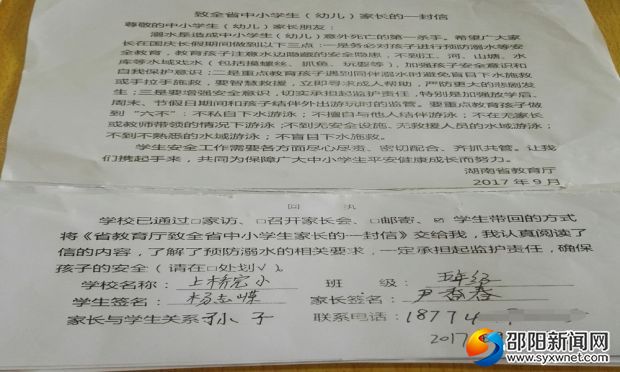 致全省中小学生（幼儿）家长的一封信
尊敬的中小学生（幼儿）家长朋友：
溺水是造成中小学生（幼儿）意外死亡的第一杀手。希望广大家
长在国庆长假期间做到以下三点：一是务必对孩子进行预防溺水等安
全教育，教育孩子注意水边隐蔽的安全隐患，不到江、河、山塘、水
库等水域处水（包括摸螺丝、抓鱼、玩耍等），加强孩子安全意识和
自我保护意识；二是重点教育孩子遇到同伴溺水时避免盲目下水施救
或手拉手施救，要智慧救援，立即寻求成人帮助，严防更大的悲剧发
生；三是要增强安全意识，切实承担起监护责任，特别是加强放学后、
周末、节假日期间和孩子结伴外出游玩时的监管。要重点教育孩子做
到“六不”：不私自下水游泳；不擅自与他人结伴游泳；不在无家长
或教师带领的情况下游泳；不到无安全设施、无救援人员的水域游泳；
不到不熟悉的水域游泳；不盲目下水施救。
学生安全工作需要各方面尽心尽责、密切配合、齐抓共管。让我
们携起手来，共同为保障广大中小学生平安健康成长而努力。
湖南省教育厅
2017 年 9 月
回 执
学校已通过□家访、□召开家长会、□邮寄、☑ 学生带回的方式
将《省教育厅致全省中小学生家长的一封信》交给我，我认真阅读了
信的内容，了解了预防溺水的相关要求，一定承担起监护责任，确保
孩子的安全（请在□处划√）。
学校名称：上杨宏小 班 级：五年级
学生签名：杨志嵘 家长签名：尹香春
家长与学生关系 孙子 联系电话：18774
2017
邵阳新闻网
www.syxwnet.com